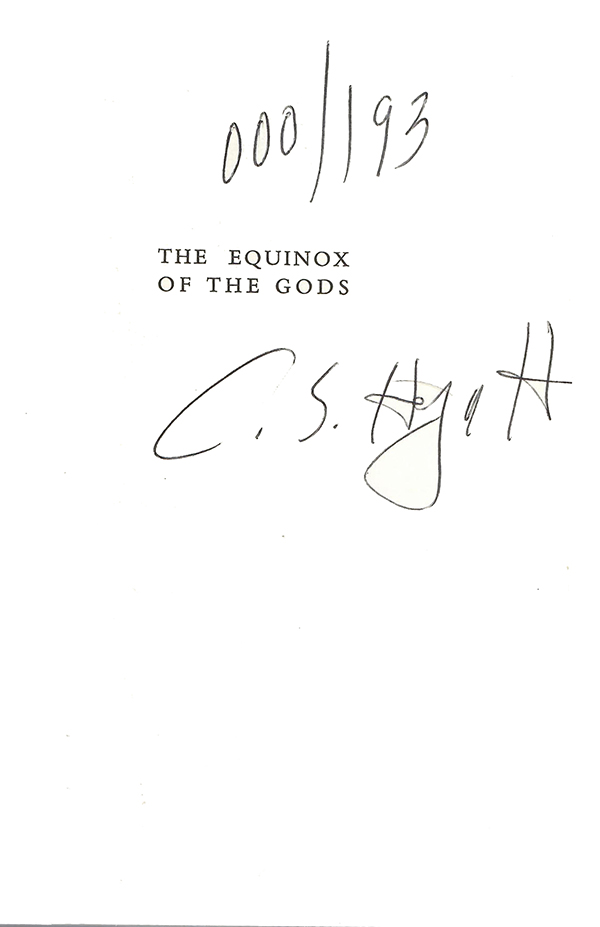 000/193
THE EQUINOX
OF THE GODS
C. S. Hyatt